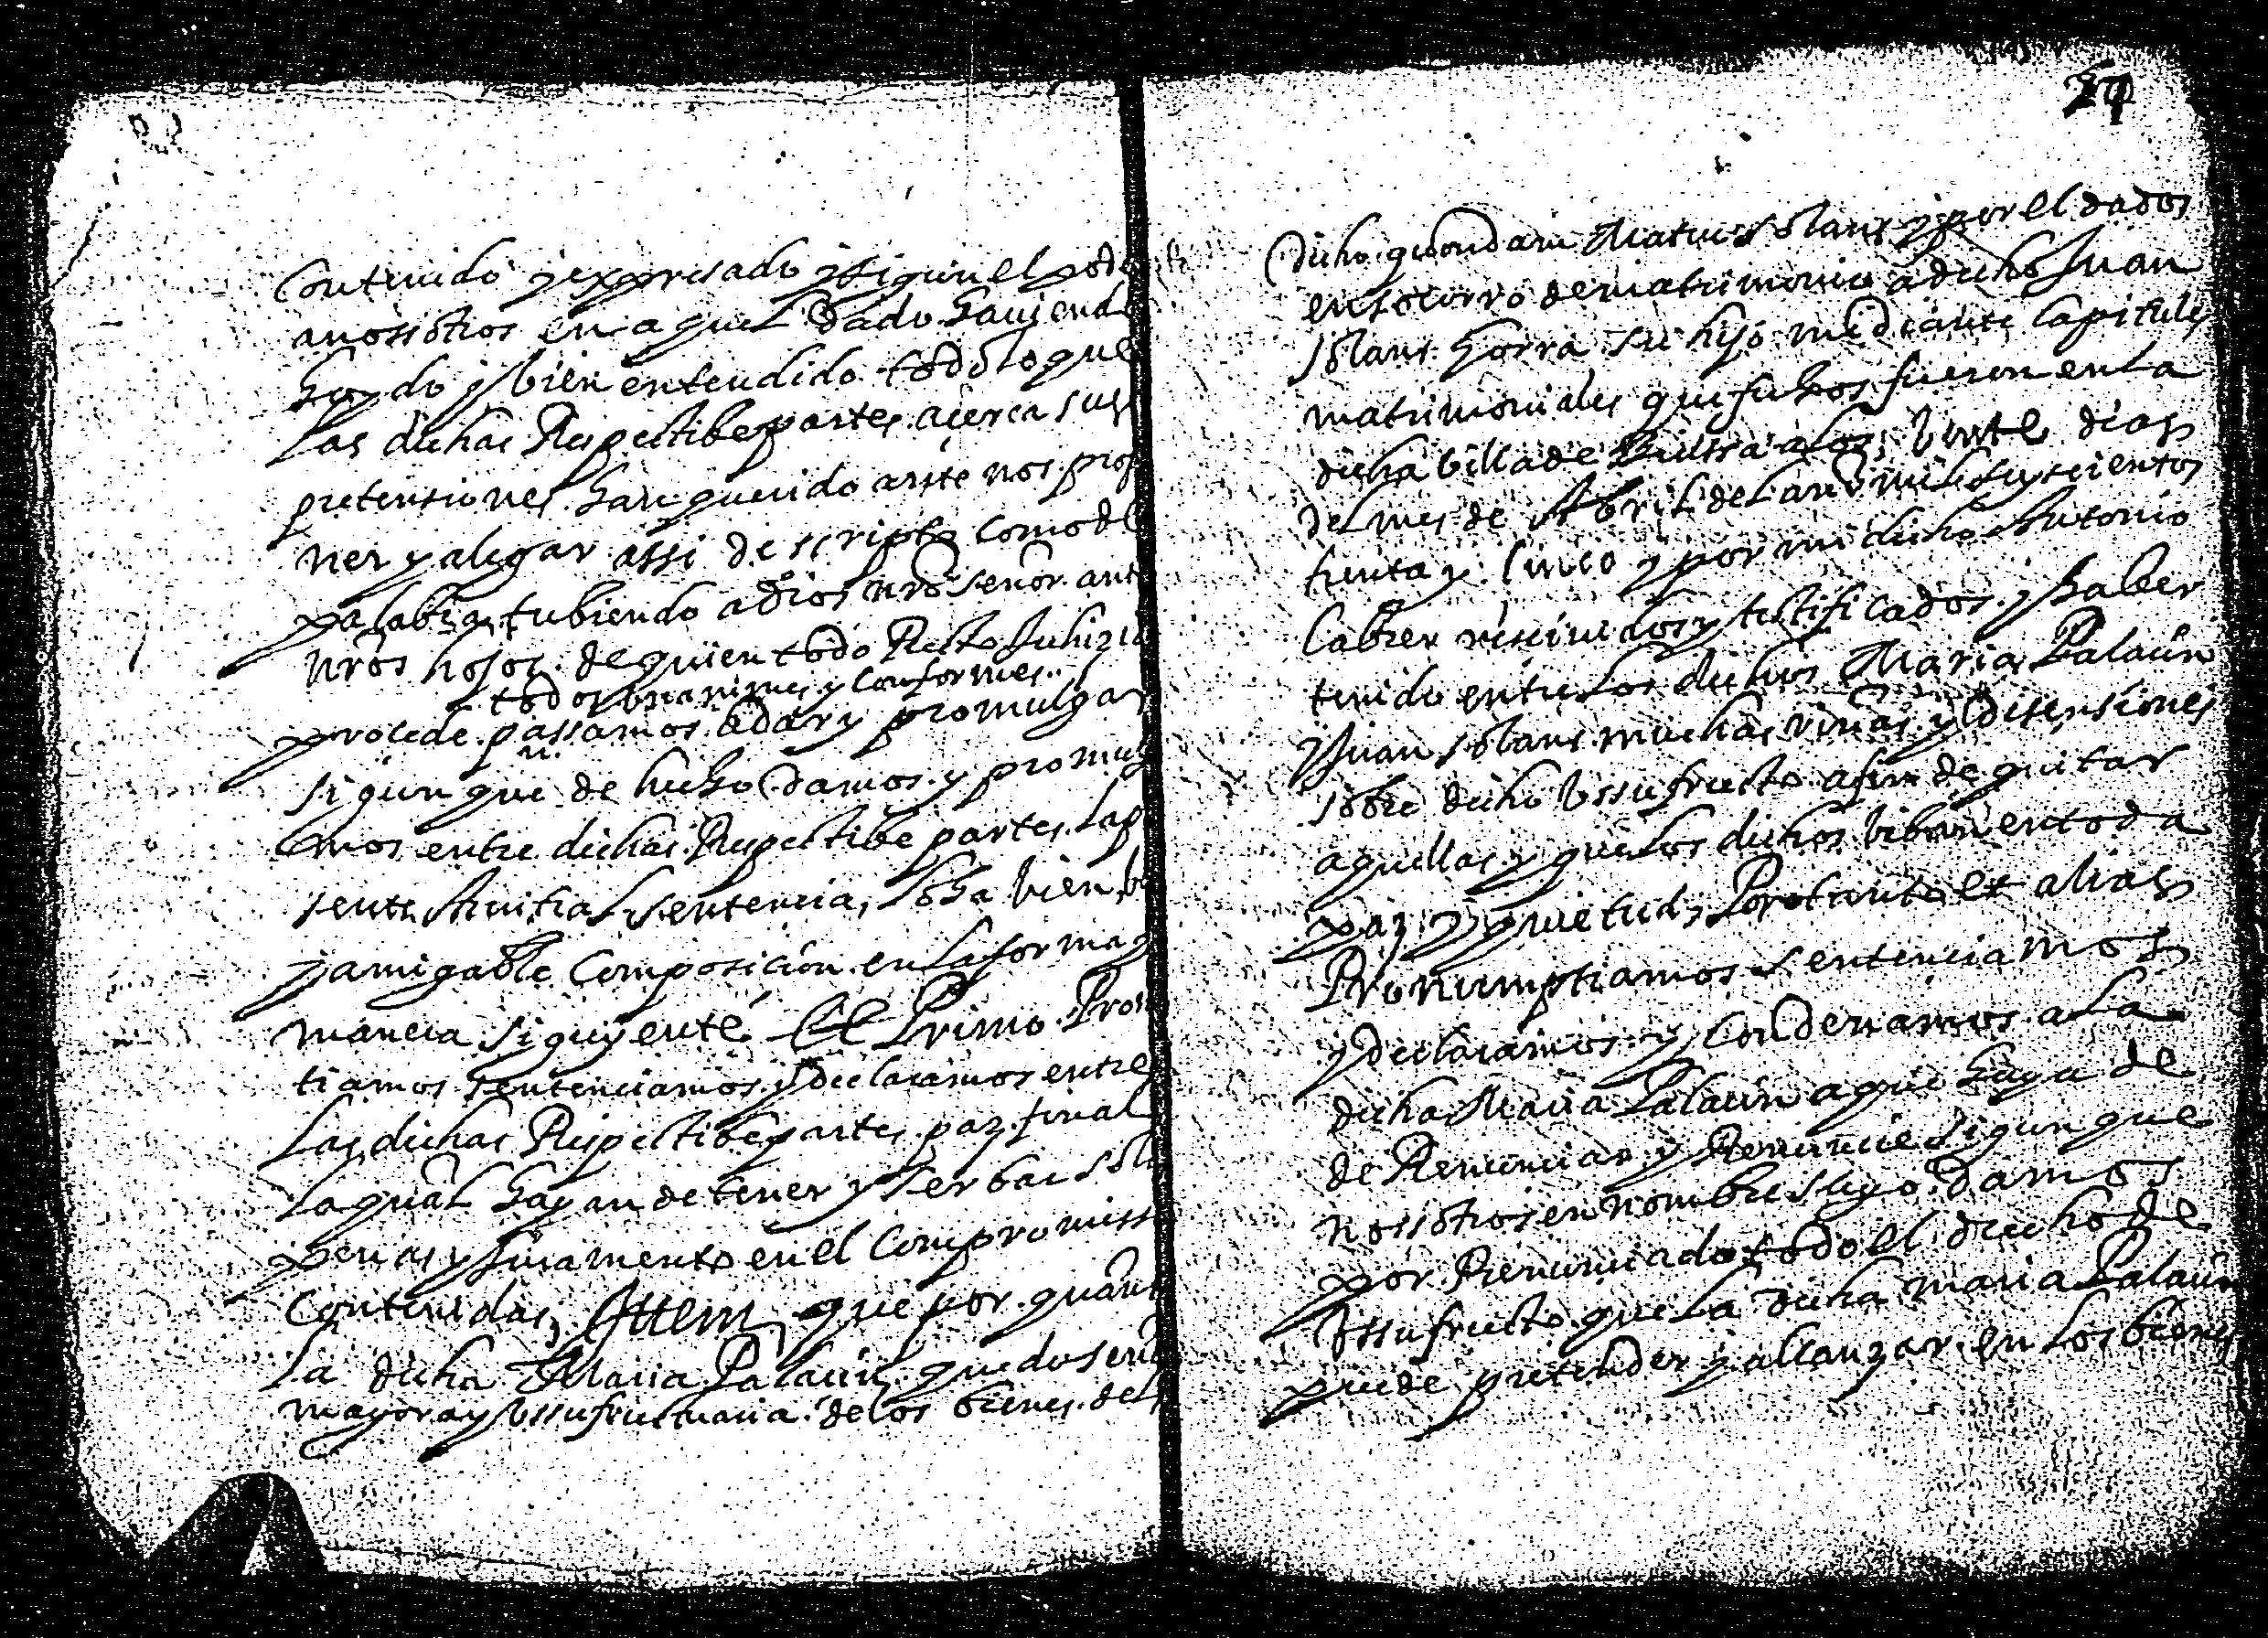 Contenido y expresado y sigun el pode
anossotros en aquel dado haviendo
hoydo y bien entendido todo lo que
las dichas Respectibe partes acerca sus
pretensiones han querido ante nos propo
ner y alegar assi de scripto como de
palabra, tubiendo a Dios nro señor ante
nros hojos de quien todo Recto Juhizio
todos unanimes y conformes
procede passamos adar y promulgar
sigun que de hecho damos y promulga
mos entre dichas Respectibe partes la pre
sente Arvitral sentencia, loha bien
y amigable Composicion en la forma y
manera siguyente Et Primo Pronun
tiamos sentenciamos y declaramos entre
las dichas Respectibe partes paz final
la qual hayan de tener y serbar so las
penas y Juramento en el Compromisso
Contenidas, Ittem que por quanto
la dicha Maria Palacin quedo señora
mayora y ussufructuaria de los bienes del
29
Dicho quondam Matheo Solans y por el dados
en socorro de matrimonio a dicho Juan
Solans Gorra su hijo mediante Capitules
matrimoniales que fechos fueron en la
dicha billa de a los vinte dias
del mes de Abril del año mil y seyscientos
trenta y Cinco y por mi dicho Antonio
Cabrer rescividos y testificados, y haber
tenido entre los dichos Maria Palacin
y Juan Solans muchas riñas y disensiones
sobre dicho Ussufructo afin de quitar
aquellas y que los dichos biban en toda
paz y quietud, Por tanto et alias
Pronumptiamos sentenciamos
y declaramos y Condenamos a la
dicha Maria Palacin a que haya de
de Renunciar y Renuncie sigun que
nossotros en nombre suyo damos
por Renunciado todo el drecho de
Ussufructo que la dicha maria Palacin
puede pretender y alcanzar en los bienes